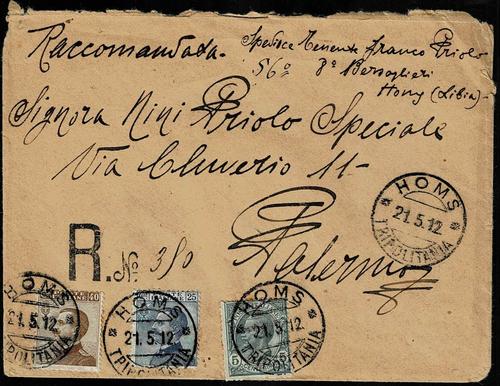 Raccomandata. Spedisce Tenente Franco Priolo
56º 8º Bersaglieri
Homs (Libia)
Signora Nini Priolo Speciale
Via Cluverio 11
Palermo
HOMS
21.5.12
TRIPOLITANIA
R. Nº 380
40
HOMS
21.5.12
TRIPOLITANIA
25
HOMS
21.5.12
TRIPOLITANIA
5
HOMS
21.5.12
TRIPOLITANIA